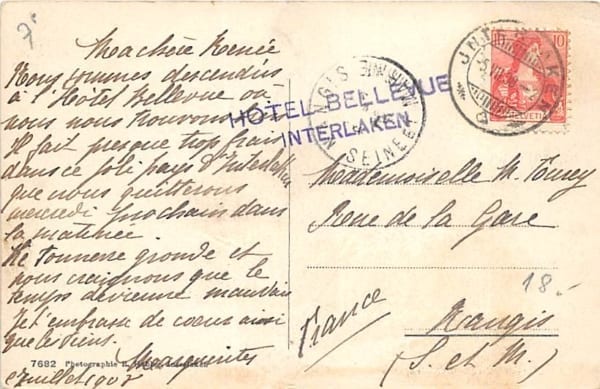 Ma chère Renée
Nous sommes descendus
à l'Hôtel Bellevue où
nous nous trouvons
Il fait presque trop frais
dans ce joli pays d'Interlaken
que nous quitterons
mercredi prochain dans
la matinée.
Le Tonnerre gronde et
nous craignons que le
temps devienne mauvais
Je t'embrasse de cœur ainsi
que les tiens.
Marguerite
Juillet 1907
7682 Photographie
HÔTEL BELLEVUE
INTERLAKEN
NANGIS
SEINE ET MARNE
INTERLAKEN
10
HELVETIA
Mademoiselle
Rue de la Gare
18.-
France
Nangis
(S. et M.)